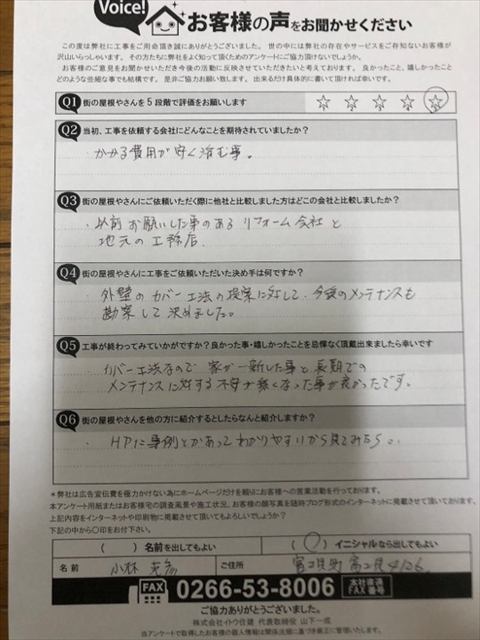 Voice!
お客様の声をお聞かせください
この度は弊社に工事をご用命頂き誠にありがとうございました。世の中には弊社の存在やサービスをご存知ないお客様が
沢山いらっしゃいます。その方たちに弊社をよく知って頂くためのアンケートにご協力頂けないでしょうか。
お客様のご意見をお聞かせいただき今後の活動に反映させていただきたいと考えております。良かったこと、嬉しかったこと
どのような些細な事でも結構です。是非ご協力お願い致します。出来るだけ具体的に書いて頂ければ幸いです。
Q1 街の屋根やさんを5段階で評価をお願いします ☆ ☆ ☆ ☆ ☆
Q2 当初、工事を依頼する会社にどんなことを期待されていましたか？
・かかる費用が安く済む事。
Q3 街の屋根やさんにご依頼いただく際に他社と比較しました方はどこの会社と比較しましたか？
・以前お願いした事のあるリフォーム会社と
地元の工務店.
Q4 街の屋根やさんに工事をご依頼いただいた決め手は何ですか？
・外壁のカバー工法の提案に対して、今後のメンテナンスも
勘案して決めました。
Q5 工事が終わってみていかがですか？良かった事・嬉しかったことを忌憚なく頂戴出来ましたら幸いです
・カバー工法なので家が一新した事と長期での
メンテナンスに対する不安が無くなった事が良かったです。
Q6 街の屋根やさんを他の方に紹介するとしたらなんと紹介しますか？
・HPに事例とかあってわかりやすいから見てみたら。
＊弊社は広告宣伝費を極力かけない為にホームページだけを頼りにお客様への営業活動を行っております。
本アンケート用紙またはお客様宅の調査風景や施工状況、お客様の顔写真を随時ブログ形式のインターネットに掲載させて頂いております。
上記内容をインターネットや印刷物に掲載させて頂いてもよろしいでしょうか？
下記の中から〇印をお付下さい。
（　）名前を出してもよい （〇）イニシャルなら出してもよい
名前 小林 ご住所 富士見町富士見4126
FAX 0266-53-8006 本社直通 FAX番号
ご協力ありがとうございました。
株式会社イトウ住建 代表取締役 山下一成
当アンケートで取得したお客様の個人情報は関係法規に基づき厳正に管理いたします。